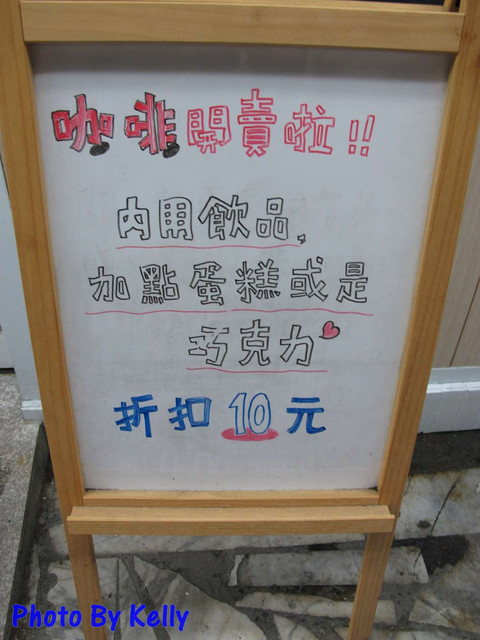 咖啡開賣啦!!
內用飲品,
加點蛋糕或是
巧克力
折扣10元
Photo By Kelly